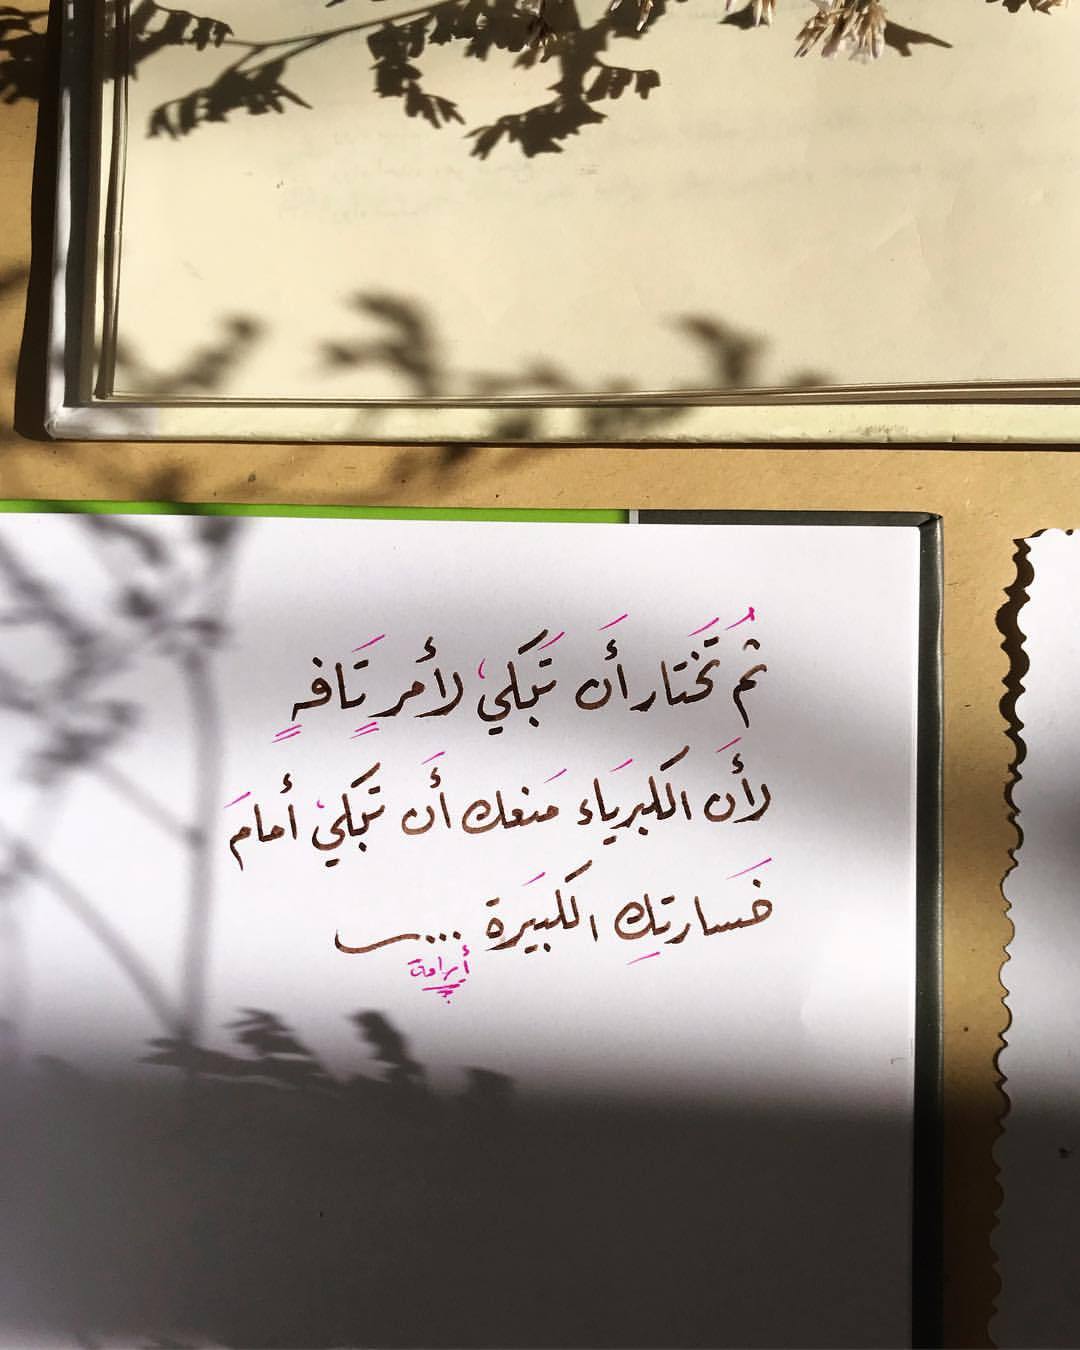 ثُم تَختَار أَن تَبكيَ لأمرٍ تَافهٍ
لأَن الكبريَاء مَنعك أَن تبكيَ أمامَ
خَسارتِك الكبيَرة ...